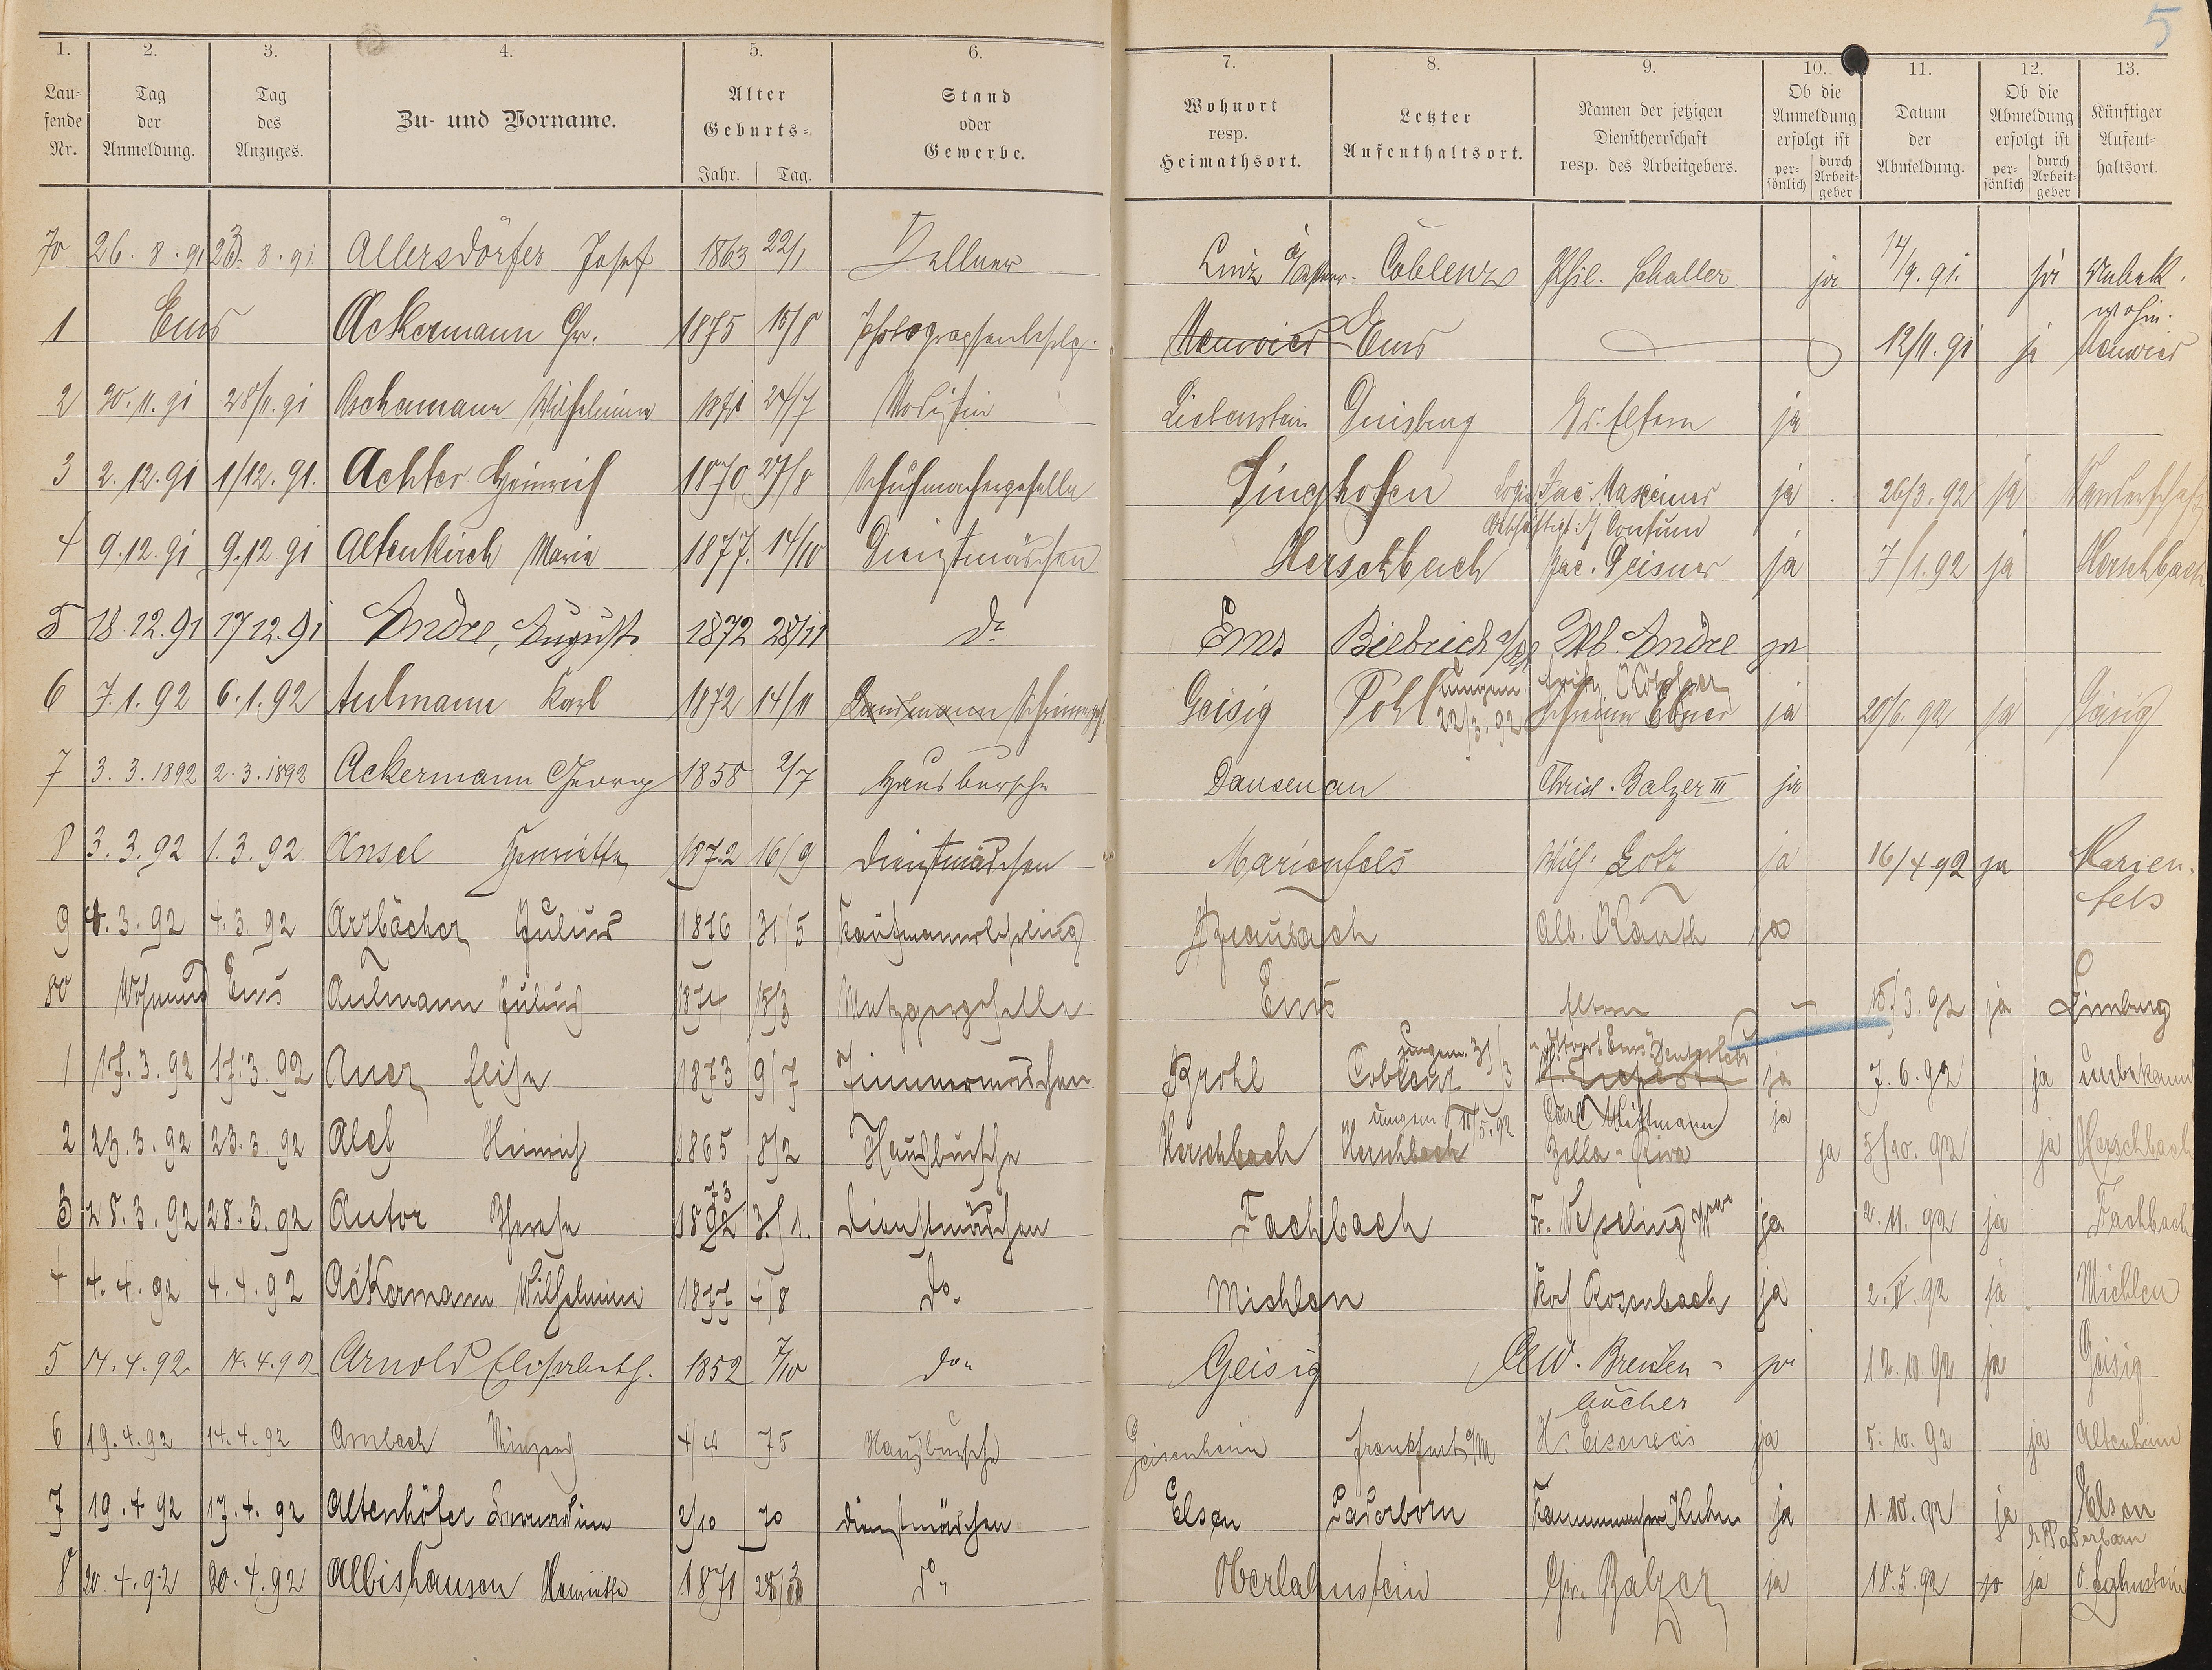 5
1. 2. 3. 4. 5. 6. 7. 8. 9. 10. 11. 12. 13.
Lau-
fende
Nr.
Tag
der
Anmeldung.
Tag
des
Anzuges.
Zu- und Vorname.
Alter
Geburts-
Jahr. Tag.
Stand
oder
Gewerbe.
Wohnort
resp.
Heimathsort.
Letzter
Aufenthaltsort.
Namen der jetzigen
Dienstherrschaft
resp. des Arbeitgebers.
Ob die
Anmeldung
erfolgt ist
per-
sönlich
durch
Arbeit-
geber
Datum
der
Abmeldung.
Ob die
Abmeldung
erfolgt ist
per-
sönlich
durch
Arbeit-
geber
Künftiger
Aufent-
haltsort.
70 26. 8. 91 23. 8. 91 Allersdörfer Josef 1863 22/1 Kellner Linz Coblenz Phil. Schaller ja 14/9. 91. ja Unbek.
wohin.
1 Ems Ackermann Chr. 1875 10/8 Photographenlehrlg. Neuwied Ems 12/11. 91 ja Neuwied
2 30. 11. 91 28/11. 91 Aschemann Wilhelmine 1871 24/7 Modistin Liebenstein Duisburg Gr. Eltern ja
3 2. 12. 91 1/12. 91. Achter Heinrich 1870 27/8 Schuhmachergeselle Singhofen Logis Jac. Maxeiner ja 26/3. 92 ja Wanderschaft
Beschäftigt: Consum
4 9. 12. 91 9. 12 91 Altenkirch Maria 1877. 14/10 Dienstmädchen Herschbach Jac. Geisner ja 7/1. 92 ja Herschbach
5 18. 12. 91 17 12. 91 Andre, August 1872 28/11 do Ems Biebrich a/Rh Wb. Andre ja
6 7. 1. 92 6. 1. 92 Aulmann Karl 1872 14/11 Landmann Geisig Pohl umgem. 22/3. 92 Schreiner Ebner ja 20/6. 92 ja Geisig
7 3. 3. 1892 2. 3. 1892 Ackermann Georg 1858 2/7 Hausbursche Dausenau Christ. Balzer III ja
8 3. 3. 92 1. 3. 92 Ansel Henriette 1872 16/9 Dienstmädchen Marienfels Wilh. Lotz ja 16/4 92 ja Marien-
fels
9 4. 3. 92 4. 3. 92 Arzbächer Julius 1876 31/5 Kaufmannslehrling Braubach Alb. Kauth ja
80 Wohnung Ems Aulmann Julius 1874 18/3 Metzgergeselle Ems Eltern 15/3. 92 ja Limburg
1 17. 3. 92 17. 3. 92 Auer Luise 1873 9/7 Zimmermädchen Brohl Coblenz umgem. 31/3 ja 7. 6. 92 ja unbekannt
umgem. 11/5. 92 Carl Wittmann ja
2 23. 3. 92 23. 3. 92 Alef Heinrich 1865 8/2 Hausbursche Herschbach Herschbach Bella-Riva ja 8/10. 92 ja Herschbach
3 28. 3. 92 28. 3. 92 Antor Therese 1892 73 3/1. Dienstmädchen Fachbach Fr. Wesseling Wwe ja 2. 11. 92 ja Fachbach
4 4. 4. 92 4. 4. 92 Ackermann Wilhelmine 1877 4/8 do. Miehlen Rosenbach ja 2. 5. 92 ja Miehlen
5 14. 4. 92. 14. 4. 92 Arnold Elisabeth. 1852 7/10 do. Geisig Aew. Breiden-
bücher ja 12. 10. 92 ja Geisig
6 19. 4. 92 14. 4. 92 Ambach Vinzenz 4/4 75 Hausbursche Geisenheim Frankfurt a/M H. ja 5. 10. 92 ja Altenheim
7 19. 4 92 17. 4. 92 Altenhöfer Bernardine 2/10 70 Dienstmädchen Elsen Paderborn Kuhn ja 1. 10. 92 ja Elsen
b. Paderborn
8 20. 4. 92 20. 4. 92 Albishausen Henriette 1871 28/3 do. Oberlahnstein Chr. Balzer ja 18. 5. 92 ja O. Lahnstein